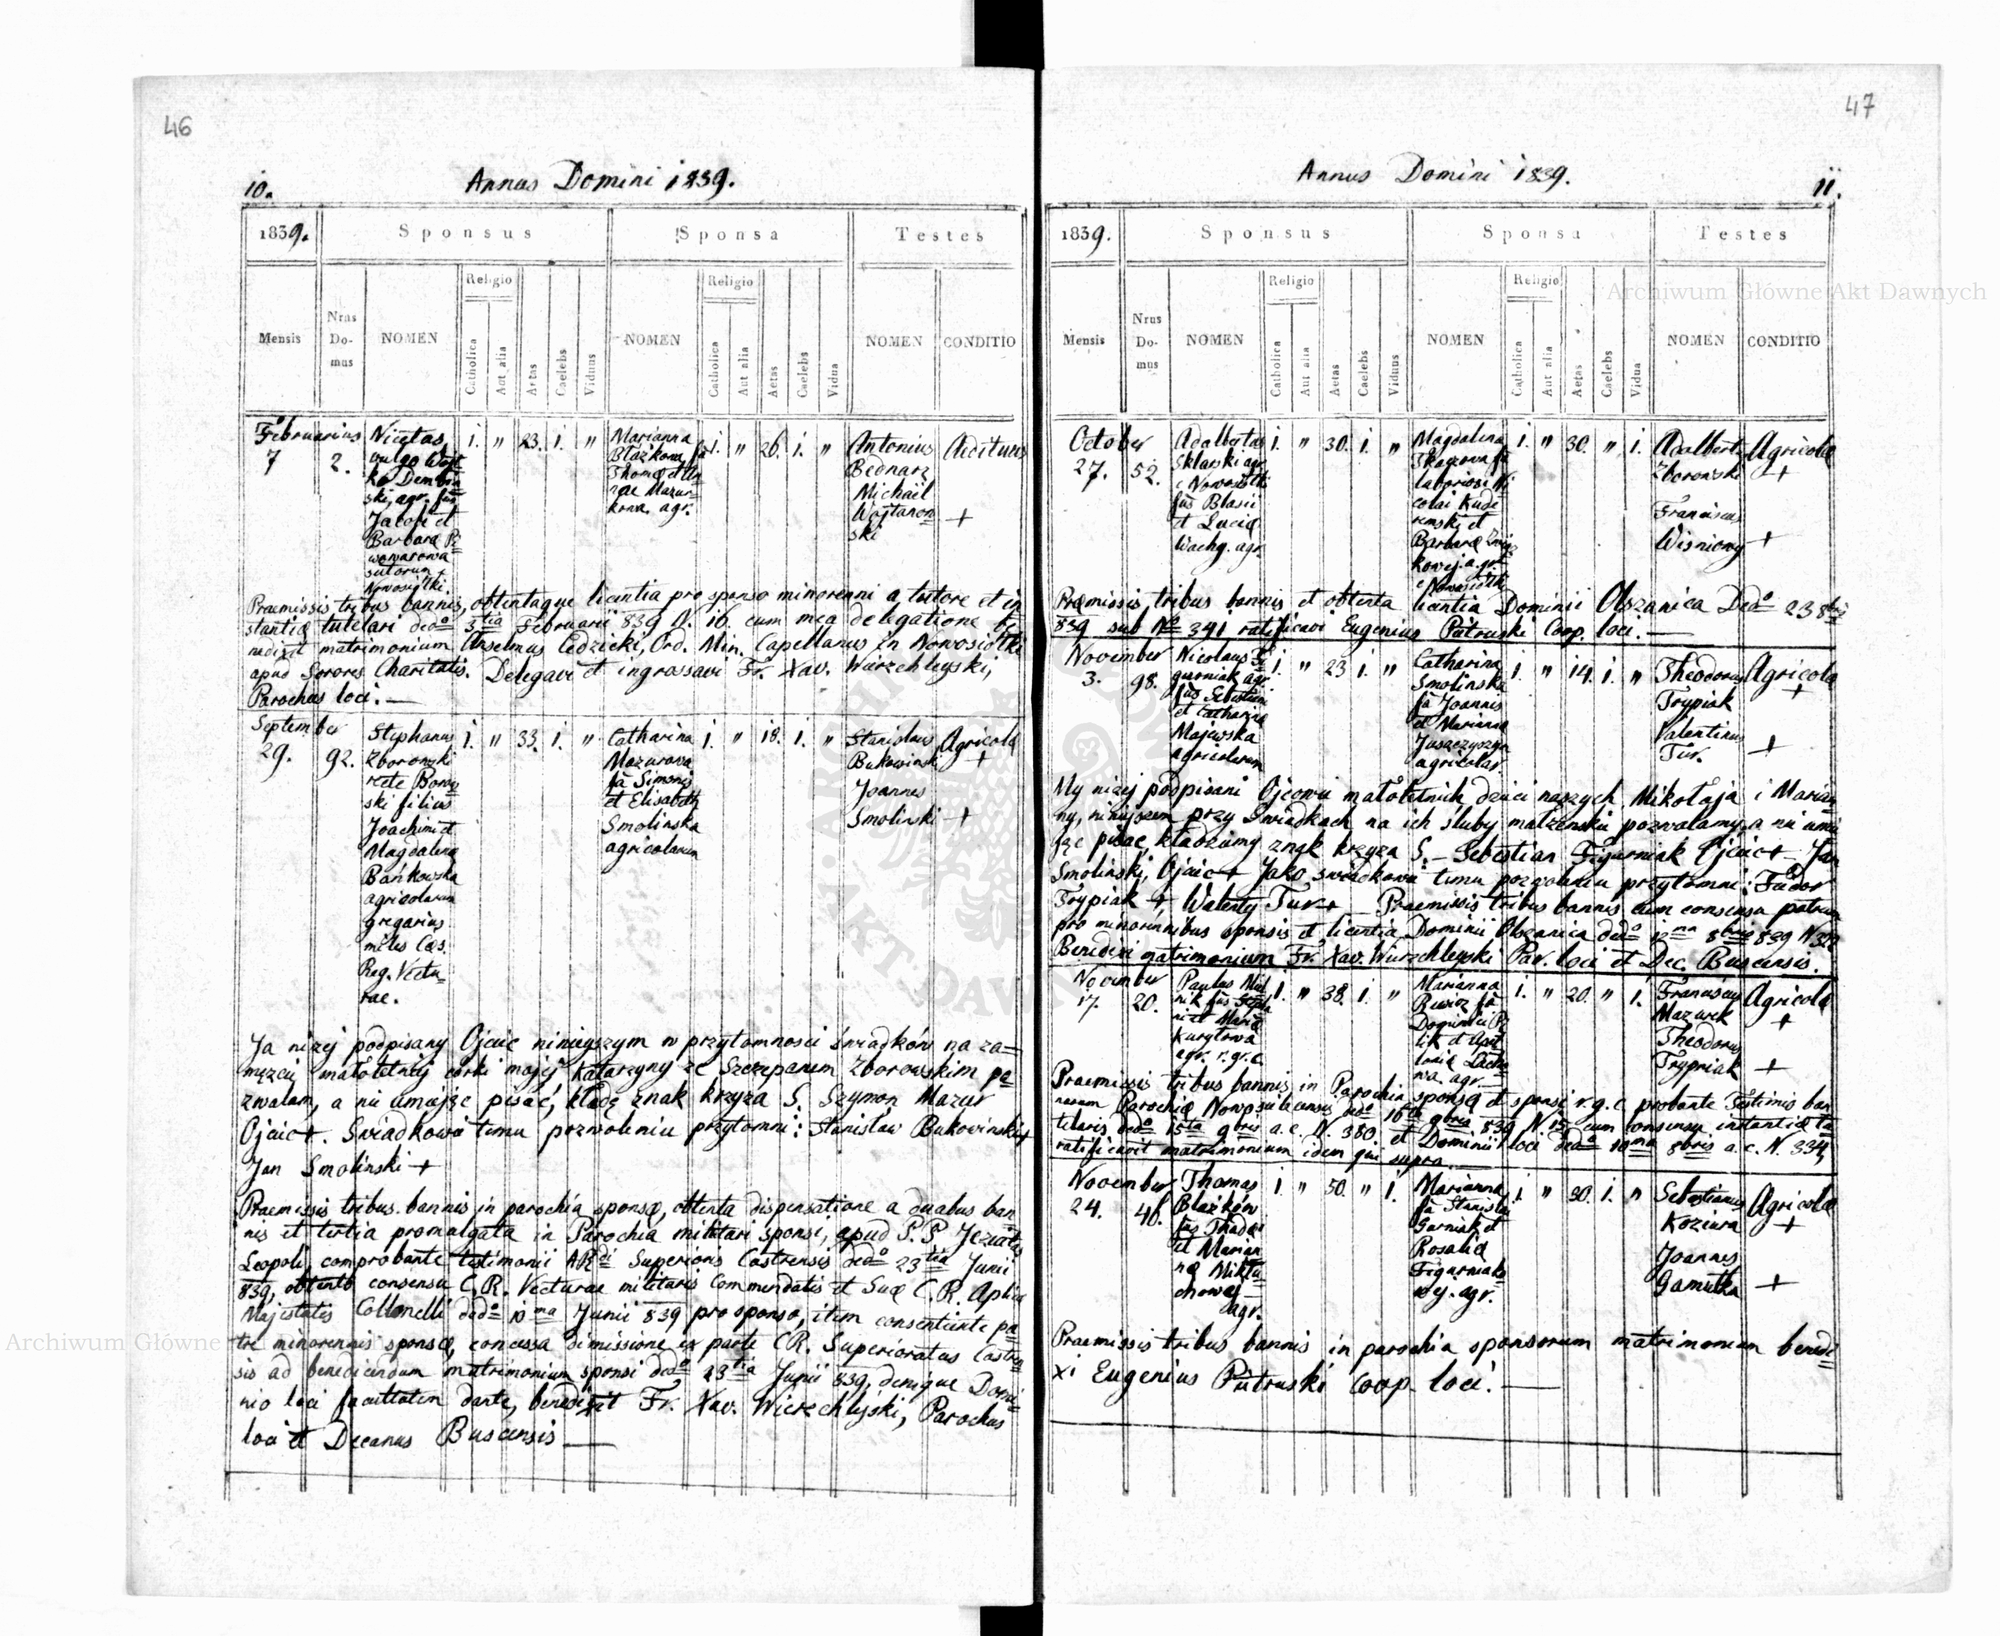 46
10.
Annus Domini 1839.
1839.
Sponsus
Sponsa
Testes
Mensis
Nrus Do-mus
NOMEN
Religio
Catholica
Aut alia
Aetas
Caelebs
Viduus
NOMEN
Religio
Catholica
Aut alia
Aetas
Caelebs
Vidua
NOMEN
CONDITIO
Februarius
7
2.
Nicetas
vulgo
Dembin
ski, agr. fil
Jacobi et
Barbara
sutorum +
Nowosiołki.
1. " 23. 1. "
Marianna
Błażkowa, fa
Thomae et
Mazur
kowa. agr.
1. " 26. 1. "
Antonius
Bednarz
Michaël
Wojtanow
ski
Aedituus
+
Praemissis tribus bannis, obtentaque licentia pro sponso minorenni a tutore et in
stantia tutelari ded 3tia Februarii 839 N. 16. cum mea delegatione be
nedixit matrimonium Anselmus Cedzicki, Ord. Min. Capellanus in Nowosiołki
apud Sorores Charitatis. Delegavi et ingrossavi Fr. Xav. Wierzchleyski,
Parochus loci. —
September
29.
92.
Stephanus
Zborowski
recte Borow
ski filius
Joachimi et
Magdalena
Bańkowska
agricolarum
gregarius
miles Caes.
Reg. Vectu-
rae.
1. " 33. 1. "
Catharina
Mazurowa
fa Simonis
et Elisabeth
Smolinska
agricolarum
1. " 18. 1. "
Stanislaus
Bukowinski
Joannes
Smolinski
Agricola
+
+
Ja niżej podpisany Ojciec niniejszym w przytomności świadków na za-
męzcie małoletniej córki mojej Katarzyny ze Szczepanem Zborowskim po
zwalam, a nie umiejąc pisać, kładę znak krzyża S. Szymon Mazur
Ojciec +. Swiadkowie temu pozwoleniu przytomni: Stanisław Bukowinski +
Jan Smolinski +
Praemissis tribus bannis in parochia sponsae, obtenta dispensatione a duabus ban
nis et tertia promulgata in Parochia militari sponsi, apud P. P. Jezuitas
Leopoli, comprobante testimonii ARdi Superioris Castrensis ded 23tia Junii
839, obtento consensu C. R. Vecturae militaris Commendatis et Suae C. R. Aplicae
Majestatis Collonelli ded 10ma Junii 839 pro sponso, item consentiente pa
tre minorennis sponsae, concessa dimissione ex parte C R. Superioratus Castren
sis ad benedicendum matrimonium sponsi ded 23tia Junii 839, denique Domi
nio loci facultatem dante, benedixit Fr. Xav. Wierzchlejski, Parochus
loci et Decanus Buscensis —
47
Annus Domini 1839.
11.
1839.
Sponsus
Sponsa
Testes
Mensis
Nrus Do-mus
NOMEN
Religio
Catholica
Aut alia
Aetas
Caelebs
Viduus
NOMEN
Religio
Catholica
Aut alia
Aetas
Caelebs
Vidua
NOMEN
CONDITIO
October
27.
52.
Adalbertus
Sklarski agr
e Nowosiołki
fils Blasii
et Lucia
agr.
1. " 30. 1. "
Magdalena
Tkaczowa fa
laboriosi Ni
colai
et
Barbara
agr.
e Nowosiołki
1. " 30. " 1.
Adalbert
Zborowski
Franciscus
Wisniowy
Agricola
+
+
Praemissis tribus bannis et obtenta licentia Dominii Olszanica Ded 23 8bris
839 sub No 341 ratificavi Eugenius Pietruski Coop. loci. —
November
3.
98.
Nicolaus Fi
gurniak agr.
fils Sebastiani
et Catharina
Majewska
agricolarum
1. " 23 1. "
Catharina
Smolinska
fa Joannis
et Marianna
agricolar.
1. " 14. 1. "
Theodorus
Trypiak
Valentinus
Tur.
Agricola
+
+
My niżej podpisani Ojcowie małoletnich dzieci naszych Mikołaja i Marian
ny, niniejszem przy świadkach na ich śluby małżenskie pozwalamy, a nie umie
jąc pisać, kładziemy znak krzyża S. — Sebestian Figurniak Ojciec + Jan
Smoliński, Ojciec + Jako świadkowie temu pozwoleniu przytomni: Fedor
Trypiak + Walenty Tur + Praemissis tribus bannis cum consensu patrum
pro minorennibus sponsis et licentia Dominii Olszanica ded 12ma 8bris 839 N
Benedixi matrimonium Fr. Xav. Wierzchleyski Par. loci et Dec. Buscensis.
November
17.
20.
Paulus
nik fils
et Maria
Kuryłowa
agr. r. gr. c.
1. " 38. 1. "
Marianna
fa
Dominici
lik et Apol
lonia
wa. agr.
1. " 20. " 1.
Franciscus
Mazurek
Theodorus
Trypniak
Agricola
+
+
Praemissis tribus bannis in Parochia sponsae et sponsi r. g. c. probante Testimonio ban
norum Parochiae ded 16ta 9bris 839 N. 15 cum consensu instantiae tu
telaris ded 15ta 9bris a. c. N. 380. et Dominii loci ded 10ma 8bris a. c. N. 334,
ratificavit matrimonium idem qui supra. —
November
24.
46.
Thomas
Błażków
fils Thadei
et Marian
na Mikłu
chowej —
agr.
1. " 50. " 1.
Marianna
fa Stanislai
Garniak et
Rosalia
Figurniako
wej. agr.
1. " 30. 1. "
Sebastianus
Koziura
Joannes
Gamułka
Agricola
+
+
Praemissis tribus bannis in parochia sponsorum matrimonium benedi
xi Eugenius Pietruski Coop. loci. —
Archiwum Główne Akt Dawnych
Archiwum Główne